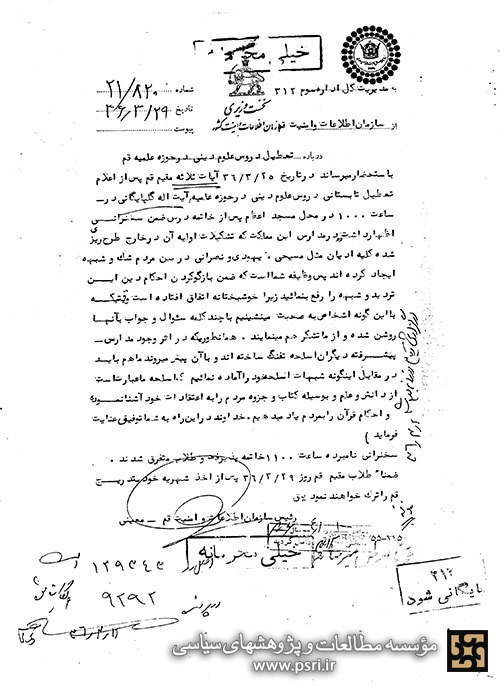 خیلی محرمانه
به مدیریت کل اداره سوم ۳۱۲
شماره ۲۱/۸۲۰
نخست وزیری
تاریخ ۳۶/۳/۲۹
از سازمان اطلاعات و امنیت قم
سازمان اطلاعات و امنیت کشور
پیوست
درباره تعطیل دروس علوم دینی در حوزه علمیه قم
باستحضار میرساند در تاریخ ۳۶/۳/۲۵ آیات ثلاثه مقیم قم پس از اعلام
تعطیل تابستانی دروس علوم دینی در حوزه علمیه، آیت اله گلپایگانی در
ساعت ۱۰۰۰ در محل مسجد اعظم پس از خاتمه درس ضمن سخنرانی
اظهار داشت در مدارس این مملکت که تشکیلات اولیه آن در خارج طرح ریزی
شده کلیه ادیان مثل مسیحی یهودی و نصرانی در بین مردم شک و شبهه
ایجاد کرده اند پس وظیفه شما است که ضمن بازگو کردن احکام دین این
تردید و شبهه را رفع بنمائید زیرا خوشبختانه اتفاق افتاده است وقتیکه
با این گونه اشخاص به صحبت مینشینیم با چند کلمه سئوال و جواب با آنها
روشن شده و از ما تشکر هم مینمایند . همانطوریکه در اثر وجود مدارس
پیشرفته دیگران اسلحه تفنگ ساخته اند و با آن پیش میروند ما هم باید
در مقابل اینگونه شبهات اسلحه خود را آماده نمائیم که اسلحه ما عبارت است
از دانش و علم و بوسیله کتاب و جزوه مردم را به اعتقادات خود آشنا نموده
و احکام قرآن را بمردم یاد میدهیم . خداوند در این راه به شما توفیق عنایت
فرماید )
سخنرانی نامبرده ساعت ۱۱۰۰ خاتمه پذیرفت و طلاب متفرق شدند .
ضمناً طلاب مقیم قم روز ۳۶/۳/۲۹ پس از اخذ شهریه خود بتدریج
قم را ترک خواهند نمود
رئیس سازمان اطلاعات و امنیت قم - معینی
خیلی محرمانه
۱۲۹۳۴۳
۹۲۹۲
۳۱۲
بایگانی شود
مؤسسه مطالعات و پژوهشهای سیاسی
www.psri.ir